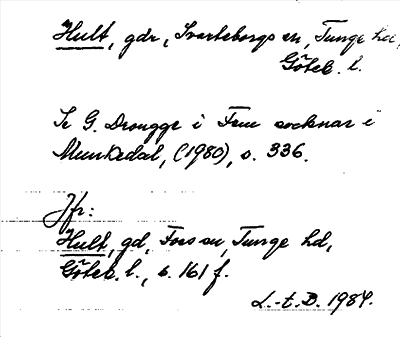 Hult, gdr, Svarteborgs sn, Tunge hd,
Göteb. l.
Se G. Drougge i Fem socknar i
Munkedal, (1980), s. 336.
Jfr:
Hult, gd, Foss sn, Tunge hd,
Göteb. l., s. 161 f.
L.-t. D. 1984.